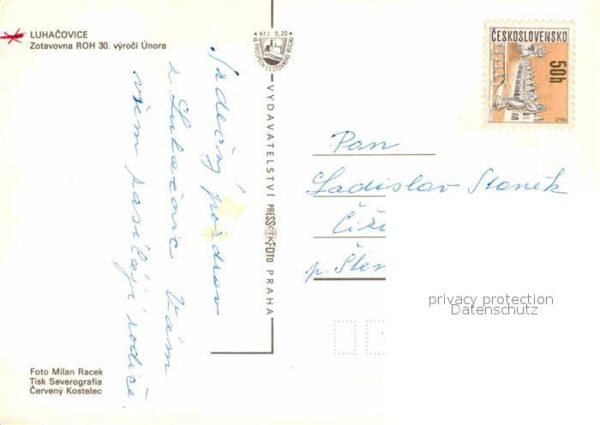 LUHAČOVICE
Zotavovna ROH 30. výročí Února
Srdečný pozdrav
z Luhačovic Vám
všem posílají rodiče.
Kčs 0,20
VYDAVATELSTVÍ PRESSFOTO PRAHA
ČESKOSLOVENSKO
50h
Pan
Ladislav Staněk
Čiži
p. Šter
privacy protection
Datenschutz
Foto Milan Racek
Tisk Severografia
Červený Kostelec